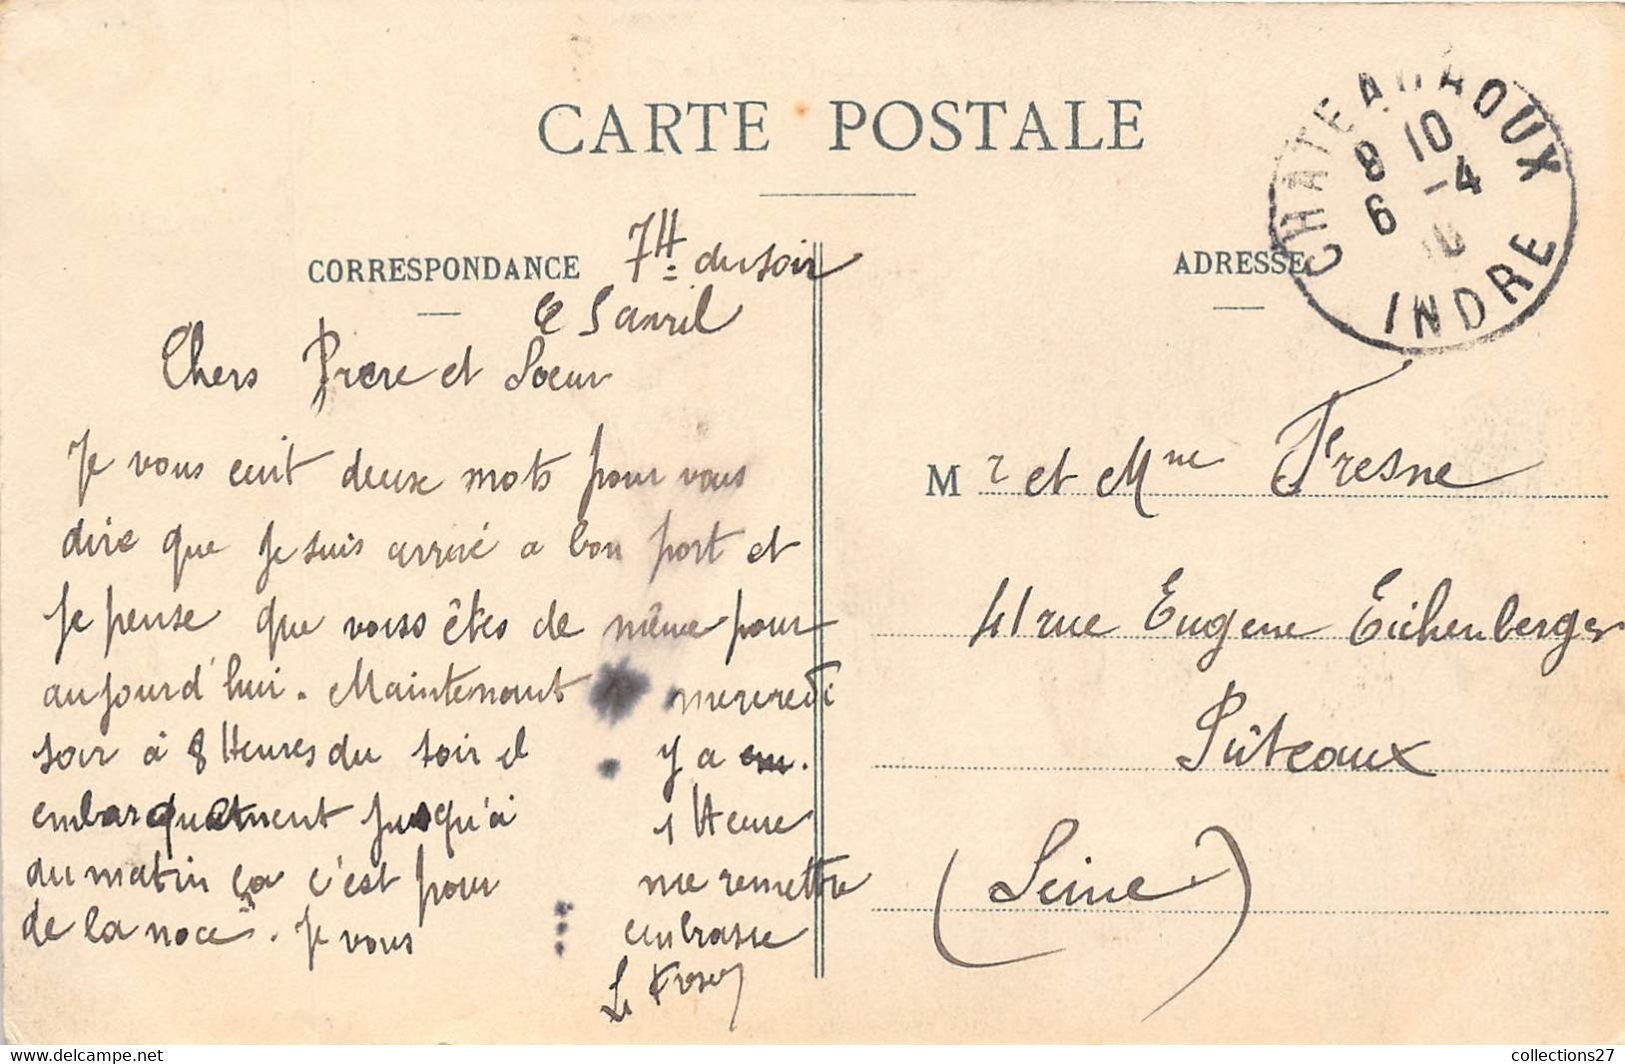 CARTE POSTALE
CHATEAUROUX
8 10
6 -4
10
INDRE
CORRESPONDANCE
7H du soir
le 5 avril
Chers Frere et Soeur
Je vous ecrit deux mots pour vous
dire que je suis arrivé a bon port et
je pense que vous êtes de même pour
aujourd'hui. Maintenant mercredi
soir à 8 Heures du soir il y a
embarquement jusqu'à 1 Heure
du matin ça c'est pour me remettre
de la noce. Je vous embrasse
ADRESSE
Mr et Mme Fresne
41 rue Eugene Eichenberger
Pûteaux
(Seine)
collections27